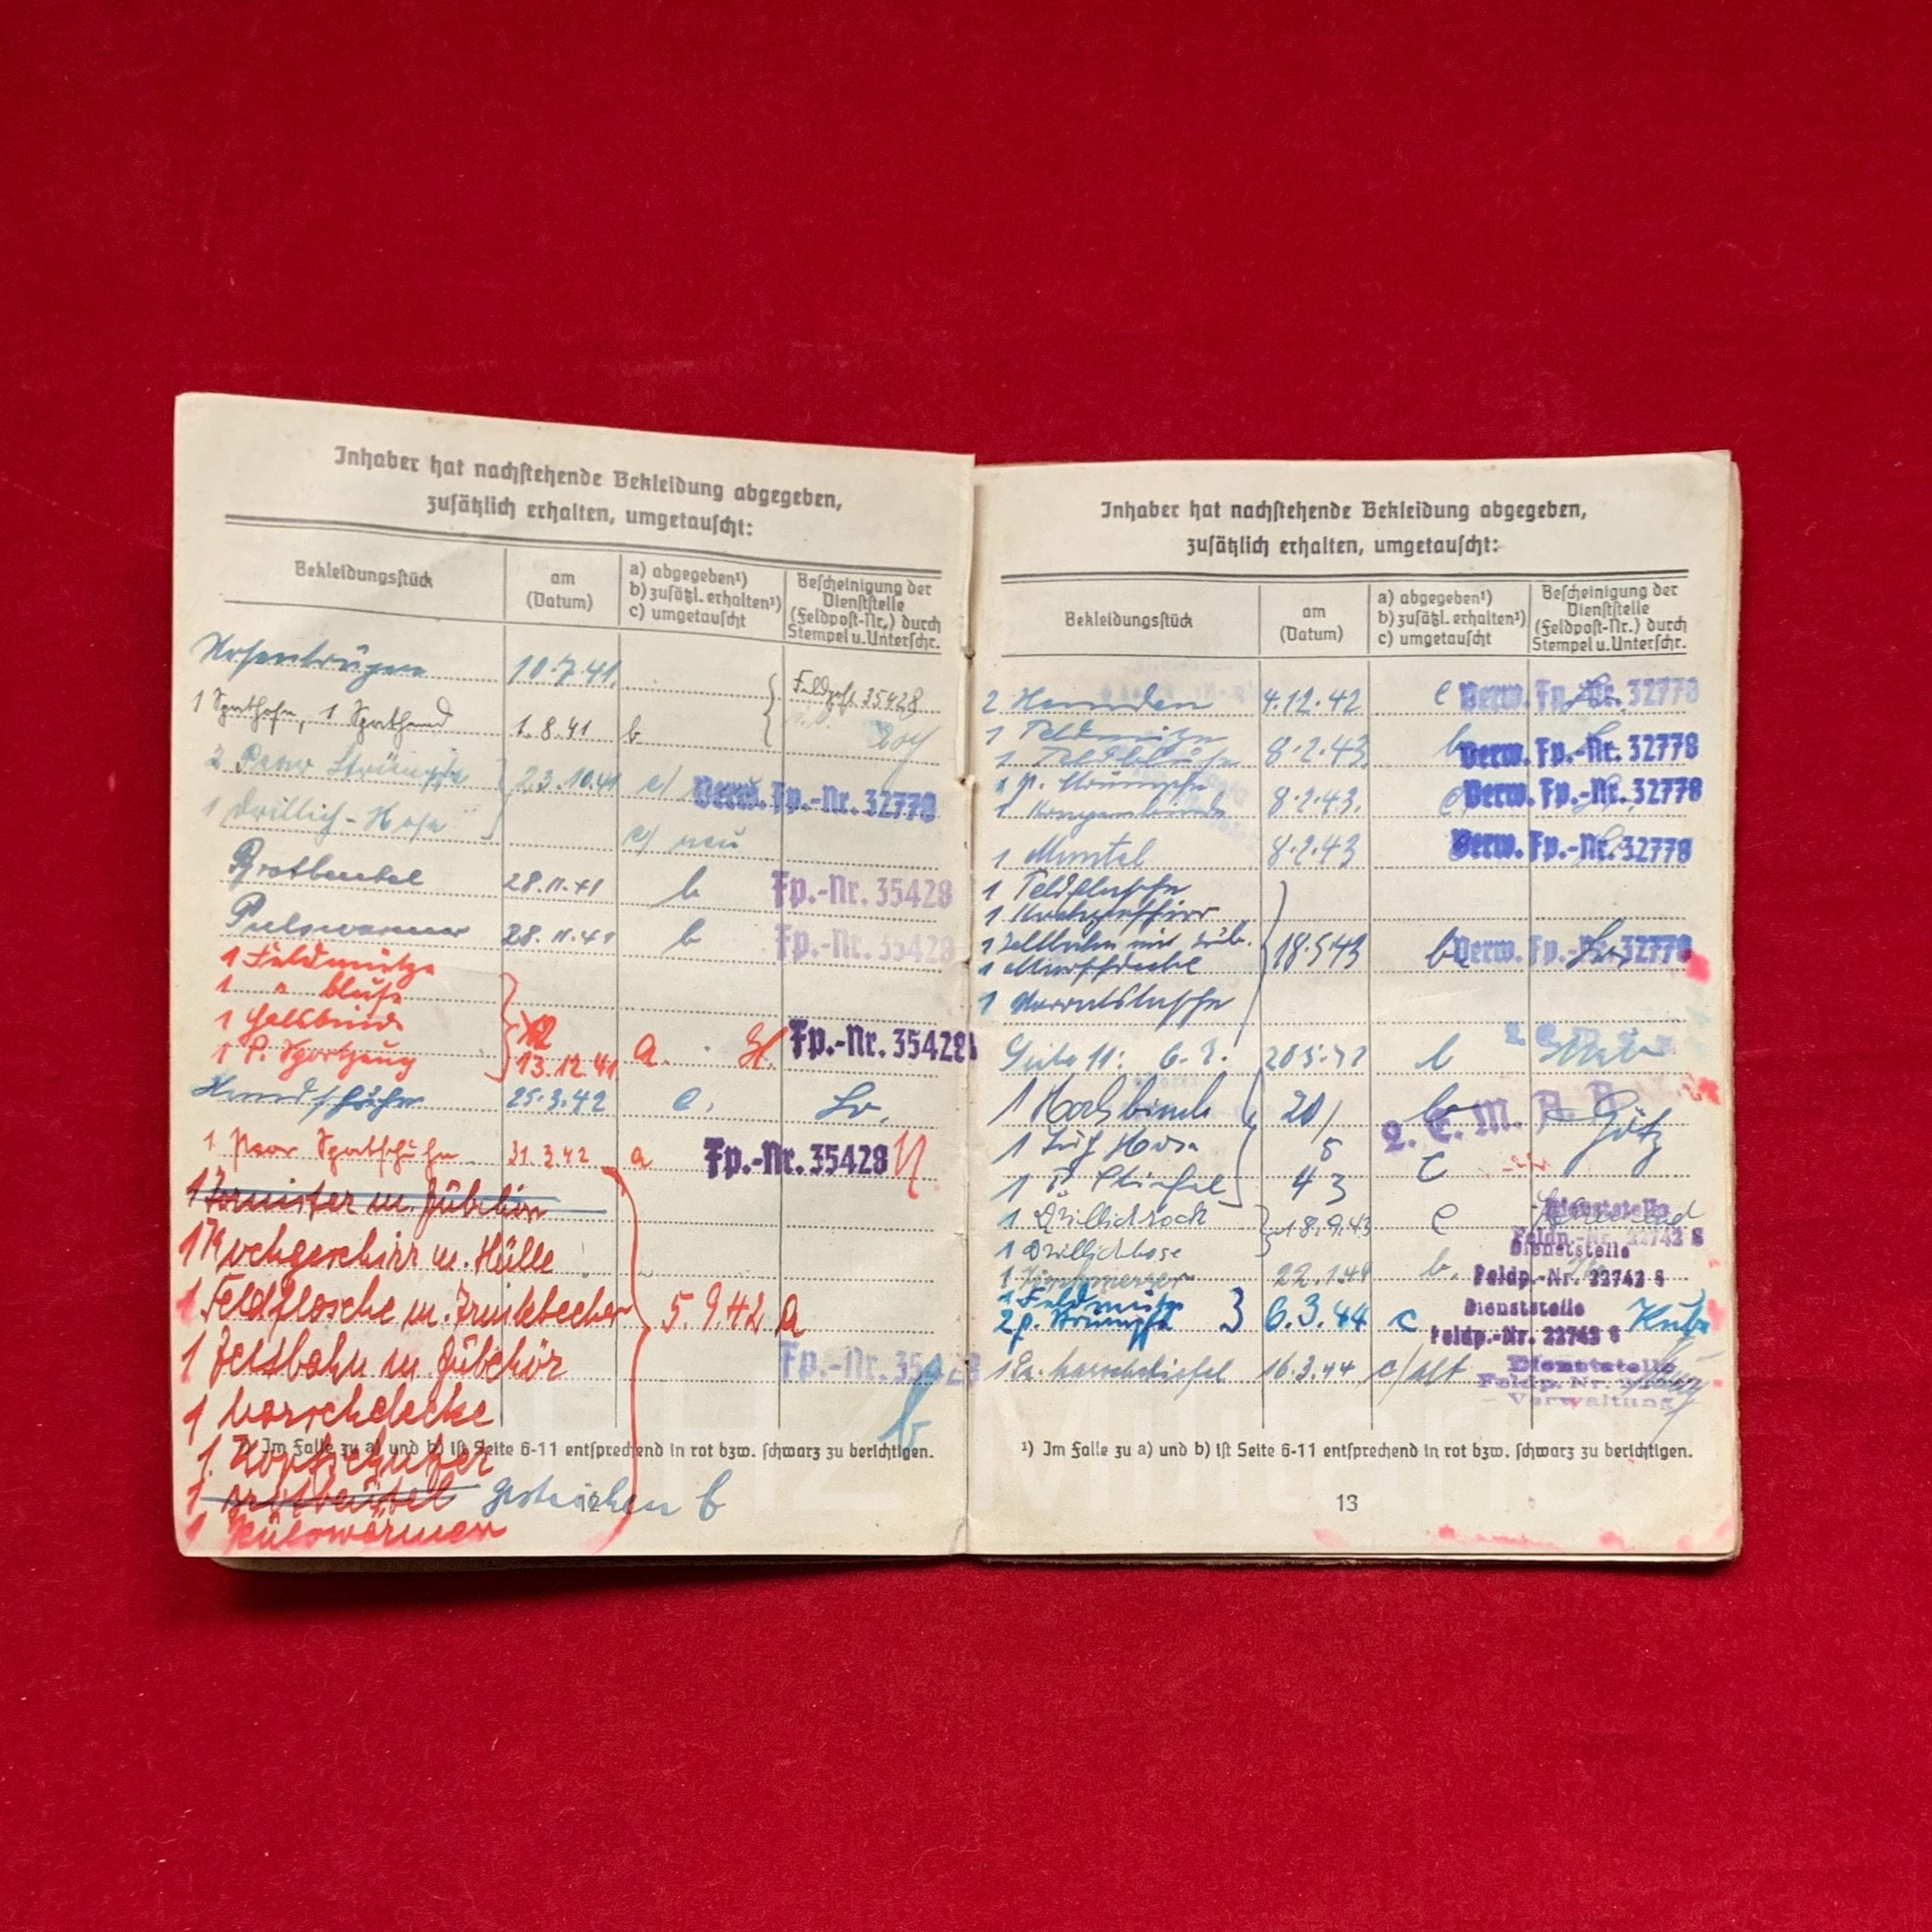 Inhaber hat nachstehende Bekleidung abgegeben,
zusätzlich erhalten, umgetauscht:
Bekleidungsstück
am
(Datum)
a) abgegeben¹)
b) zusätzl. erhalten¹)
c) umgetauscht
Bescheinigung der
Dienststelle
(Feldpost-Nr.) durch
Stempel u. Unterschr.
Hosenträger 10.7.41.
Feldpost 35428
1 Sporthose, 1 Sporthemd 1.8.41 b
2 Paar Strümpfe 23.10.41 c) Verw. Fp.-Nr. 32778
1 Drillich-Hose c) neu
Brotbeutel 28.11.41 b Fp.-Nr. 35428
Pulswärmer 28.11.41 b Fp.-Nr. 35428
1 Feldmütze
1 " bluse
1 Halsbinde
1 P. Sportzeug 13.12.41. a. Fp.-Nr. 35428
Handschuhe 25.3.42 c.
1 Paar Sportschuhe 31.3.42 a Fp.-Nr. 35428
1 Tornister m. Zübehör
1 Kochgeschirr m. Hülle
1 Feldflasche m. Trinkbecher 5.9.42 a
1 Zeltbahn m. Zübehör Fp.-Nr. 35428
1 Marschdecke b
¹) Im Falle zu a) und b) ist Seite 6-11 entsprechend in rot bzw. schwarz zu berichtigen.
1 Kopfschützer
1 Brotbeutel gestrichen b
12
1 Pülswärmer
Inhaber hat nachstehende Bekleidung abgegeben,
zusätzlich erhalten, umgetauscht:
Bekleidungsstück
am
(Datum)
a) abgegeben¹)
b) zusätzl. erhalten¹)
c) umgetauscht
Bescheinigung der
Dienststelle
(Feldpost-Nr.) durch
Stempel u. Unterschr.
2 Hemden 4.12.42 c Verw. Fp.-Nr. 32778
1 Feldmütze
1 Feldbluse 8.2.43 b Verw. Fp.-Nr. 32778
1 p. Strümpfe
1 Kragenbinde 8.2.43. c Verw. Fp.-Nr. 32778
1 Mantel 8.2.43 Verw. Fp.-Nr. 32778
1 Feldflasche
1 Kochgeschirr
1 Zeltbahn mit Zub. 18.5.43 b Verw. Fp.-Nr. 32778
1 Marschdecke
1 Vorratstasche
Seite 11: b
1 Halsbinde 20/ b
2. E. M. Götz
1 Hose 5 c
1 P. Stiefel 43
1 Drillichrock 18.9.43 c Dienststelle
Feldp.-Nr. 22743 S
1 Drillichhose
Dienststelle
22.1.44 b. Feldp.-Nr. 22743 S
1 Feldmütze
2 p. Strümpfe 6.3.44 c Dienststelle
Feldp.-Nr. 22743 S
1 Marschstiefel 16.3.44 c/alt Dienststelle
Feldp. Nr.
Verwaltung
¹) Im Falle zu a) und b) ist Seite 6-11 entsprechend in rot bzw. schwarz zu berichtigen.
13